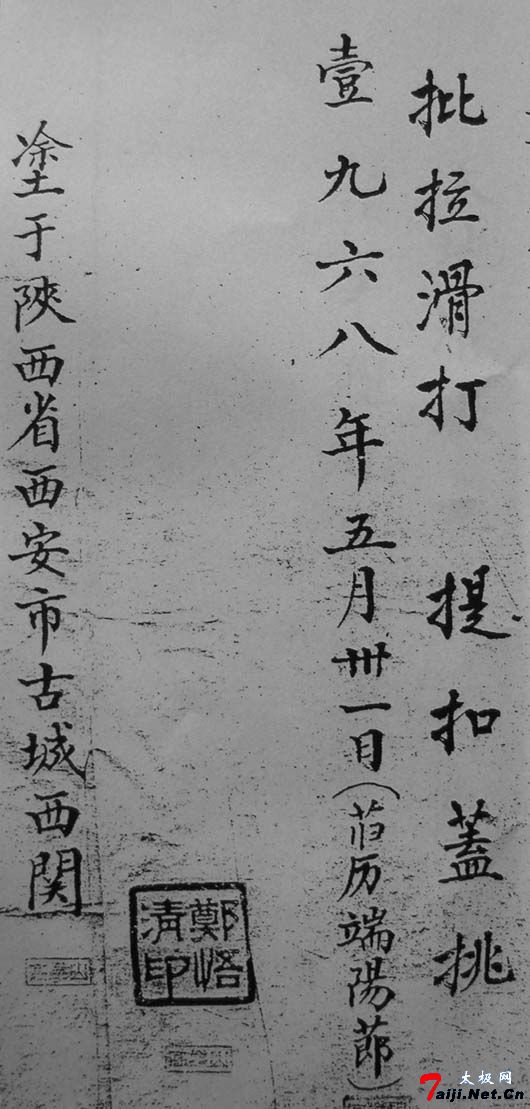 批拉滑打 提扣蓋挑
壹九六八年五月卅一日(旧历端陽節)
塗于陝西省西安市古城西関
鄭悟清印
太极网
7aiji.Net.Cn